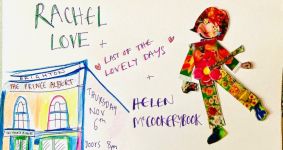 RACHEL
LOVE +
LAST OF THE
LOVELY DAYS
+
HELEN
McCOOKERYBOOK
BRIGHTON
THE PRINCE ALBERT
THURSDAY
NOV
6th
DOORS 8pm